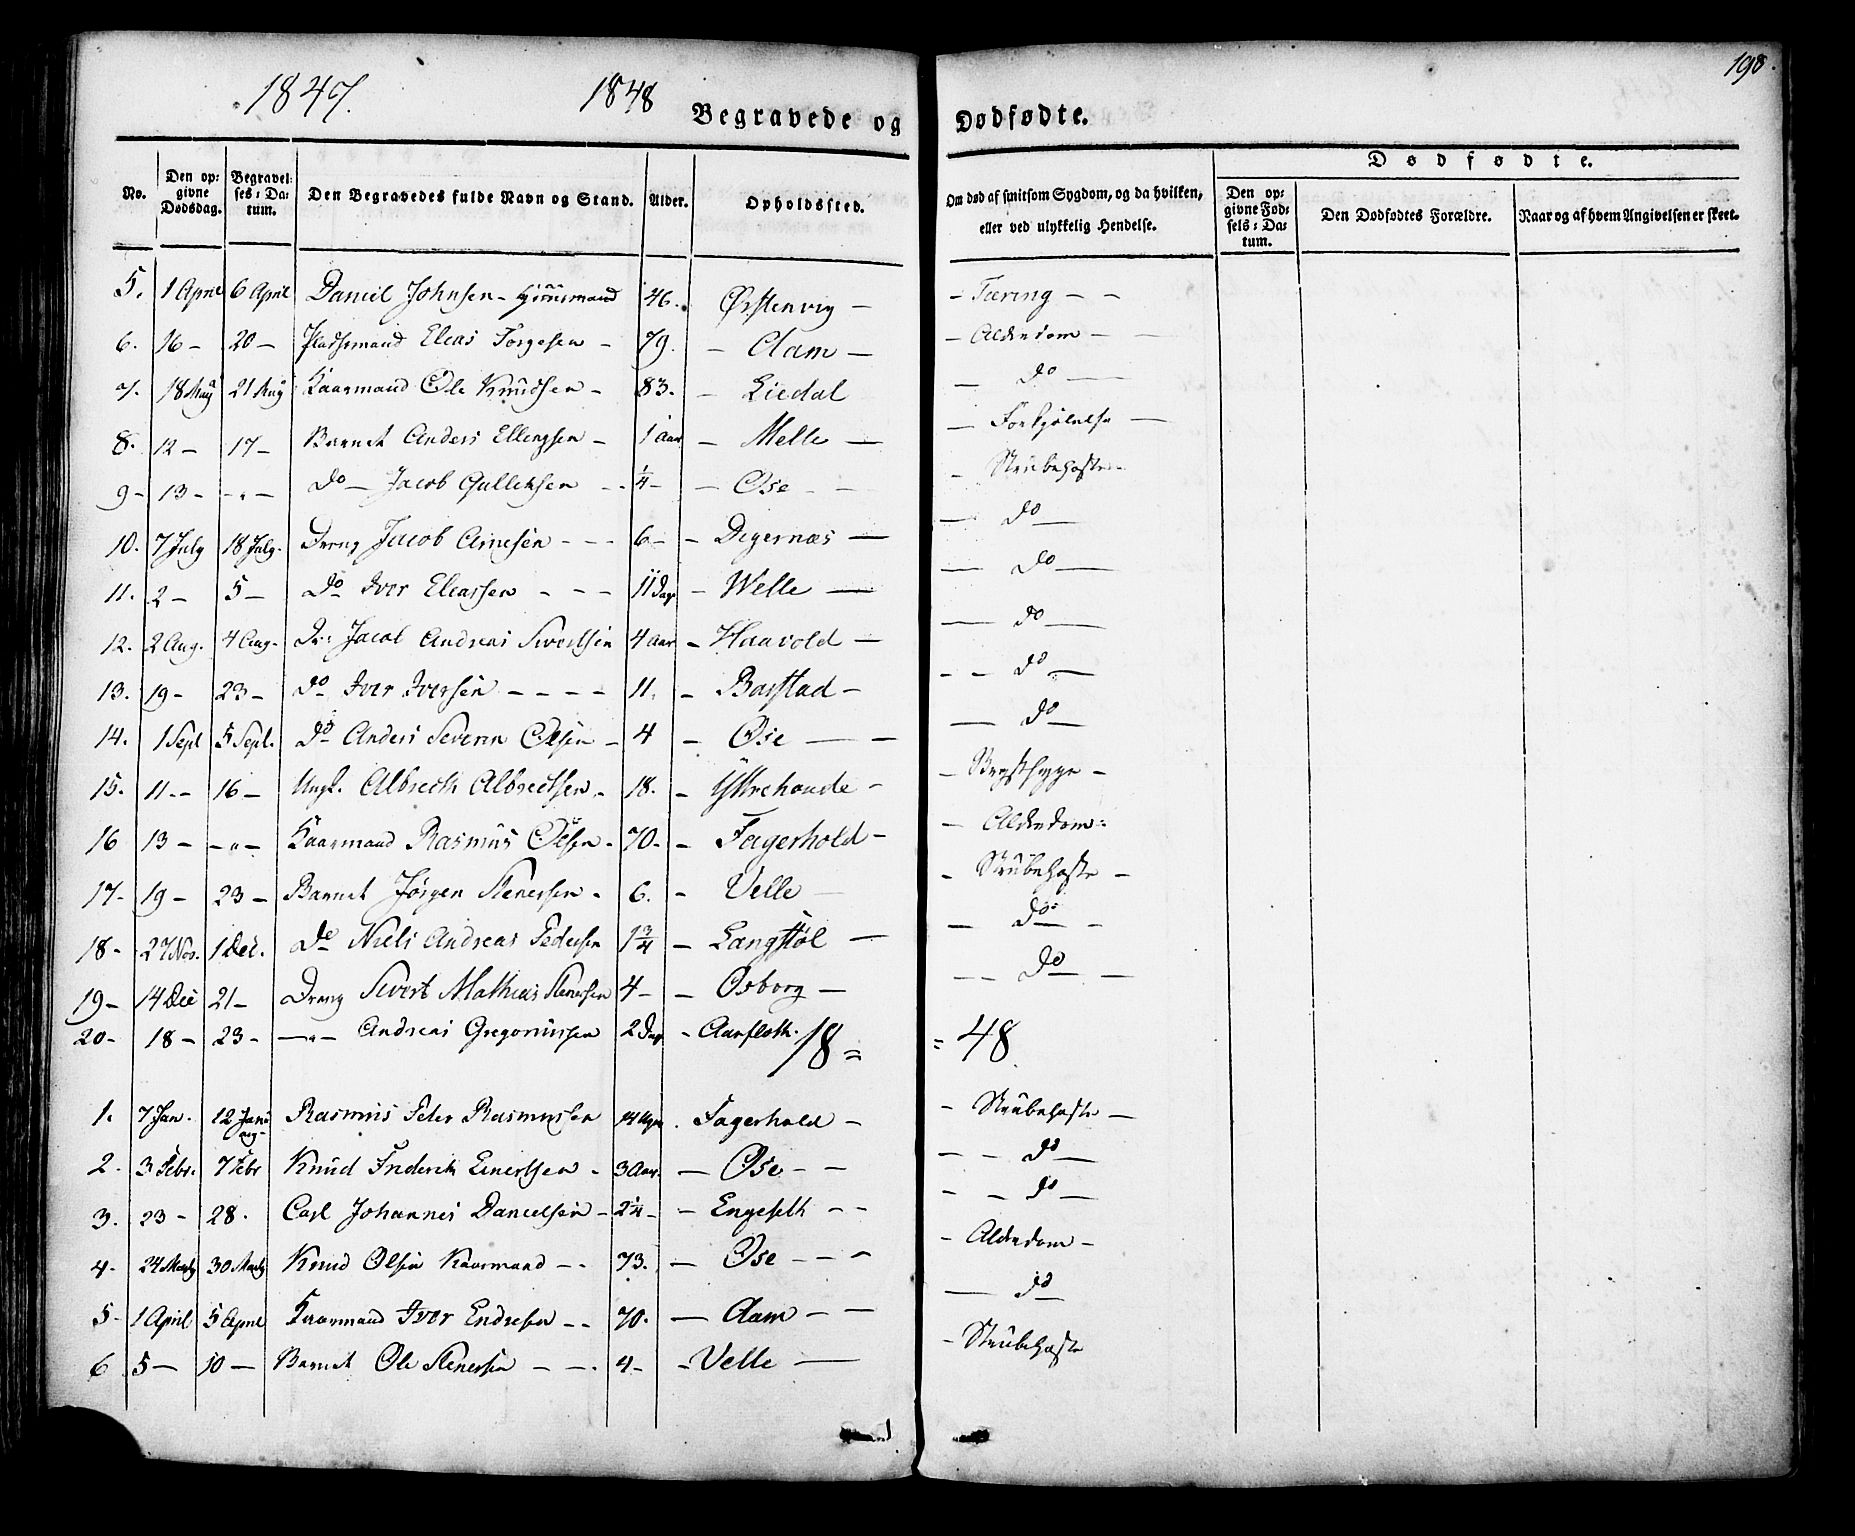 198.
1847. 1848 Begravede og Dødfødte.
Dødfødte.
No. Den opgivne Dødsdag. Begravelses-Datum. Den Begravedes fulde Navn og Stand. Alder. Opholdssted. Om død af smitsom Sygdom, og da hvilken, eller ved ulykkelig Hendelse. Den opgivne Fødsels-Datum. Den Dødfødtes Forældre. Naar og af hvem Angivelsen er skeet.
5. 1 April 6 April Daniel Johnsen - Huusmand 46. Ørstenvig - - Tæring - -
6. 16 - 20 - Pladsemand Elias Torgesen - 79. - Aam - - Alderdom -
7. 18 May 21 May Kaarmand Ole Knudsen - 83. - Liedal - do -
8. 12 - 17 - Barnet Anders Ellingsen - 1 Aar - Melle - - Forkjølelse -
9 - 13 - - " - do - Jacob Gulleksen - - 1/4 - - Øse - - - Strubehoste -
10. 7 July 18 July. Dreng Jacob Arnesen - - - 6 - - Digernæs - - do -
11. 2 - 5 - do Iver Eleassen - - - 11 Dage - Welle - - do -
12. 2 Aug. 4 Aug. Dr: Jacob Andreas Sivertsen 4 Aar - Haavold - - do -
13. 19 - 23 - do Iver Iversen - - - - 11. - Barstad - - - do -
14. 1 Sept 5 Sept. do Anders Severin Olsen - 4 - Øse - - - do -
15. 11 - - 16 - Ungk. Albrecth Albrectsen. 18. - Ytrehovde - - Brystsyge -
16 13 - - " - Kaarmand Rasmus Olsen - 70 - - Fagerhold - - Alderdom -
17 - 19 - 23 - Barnet Jørgen Stenersen - 6. - Velle - - Strubehoste -
18 - 27 Nov. 1 Dec. do Niels Andreas Pedersen 1 3/4 - Langstøl - - do -
19 - 14 Dec 21 - Dreng Sivert Mathias Stenersen 4 - - Osborg - - - do -
20 - 18 - 23 - - " - Andreas Gregoriussen 2 Dage - Aarfloth.
18 = = 48.
1. 7 Jan. 12 Januarj - Rasmus Peter Rasmussen 14 Uger. Fagerhold - - Strubehoste -
2. 3 Febr. 7 Febr Knud Frederik Einertsen - 3 Aar. - Øse - - - - do -
3. 23 - 28. Carl Johannes Danielsen - 2 1/4 - - Engeseth - - - - do -
4 - 24 Marts 30 Marts Knud Olsen Kaarmand - - 73. - Øse - - - - Alderdom -
5 - 1 April 5 April Kaarmand Iver Endresen - - 70. - Aam - - - do
6 5 - 10 - Barnet Ole Stenersen - - - 4 - - Velle - - Strubehoste